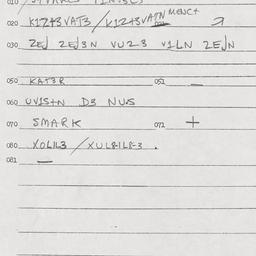 020 K1Z+3VAT3 / K1Z+3VATN MENC+
030 ZEJ ZEJ3N VU23 V1LN ZEJN
050 KAT3R 051 —
060 UV1S+N D3 NUS
070 SMARK 071 +
080 XOL1L3 / XUL8-1L8-3 .
081 —